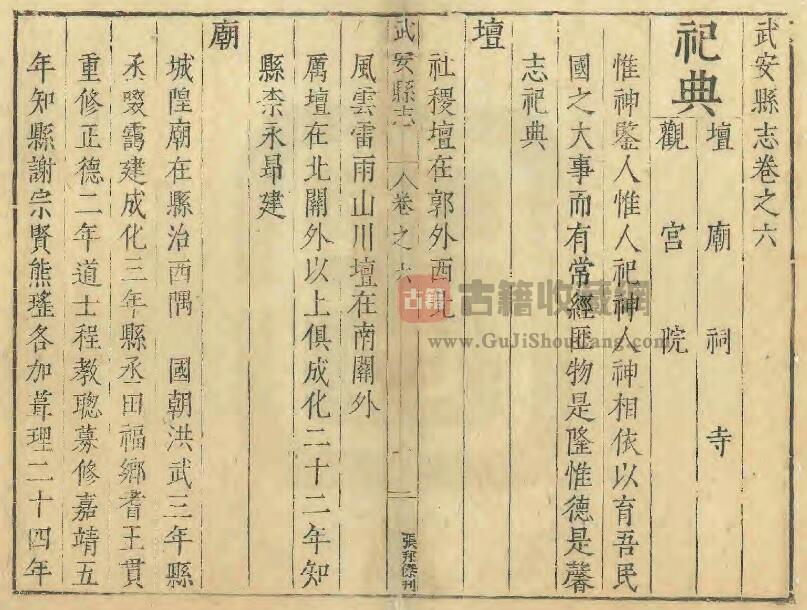 武安縣志卷之六
祀典
壇 廟 祠 寺
觀 宮 院
惟神鑒人惟人祀神人神相依以育吾民
國之大事而有常經匪物是隆惟德是馨
志祀典
壇
社稷壇在郭外西北
武安縣志 卷之六 一 張邦傑刊
風雲雷雨山川壇在南關外
厲壇在北關外以上俱成化二十二年知
縣柰永昻建
廟
城隍廟在縣治西隅 國朝洪武三年縣
丞叚霱建成化三年縣丞田福鄉耆王貫
重修正德二年道士程教聰募修嘉靖五
年知縣謝宗賢熊瑤各加葺理二十四年
古籍
古籍收藏網
www.GuJiShouCang.com